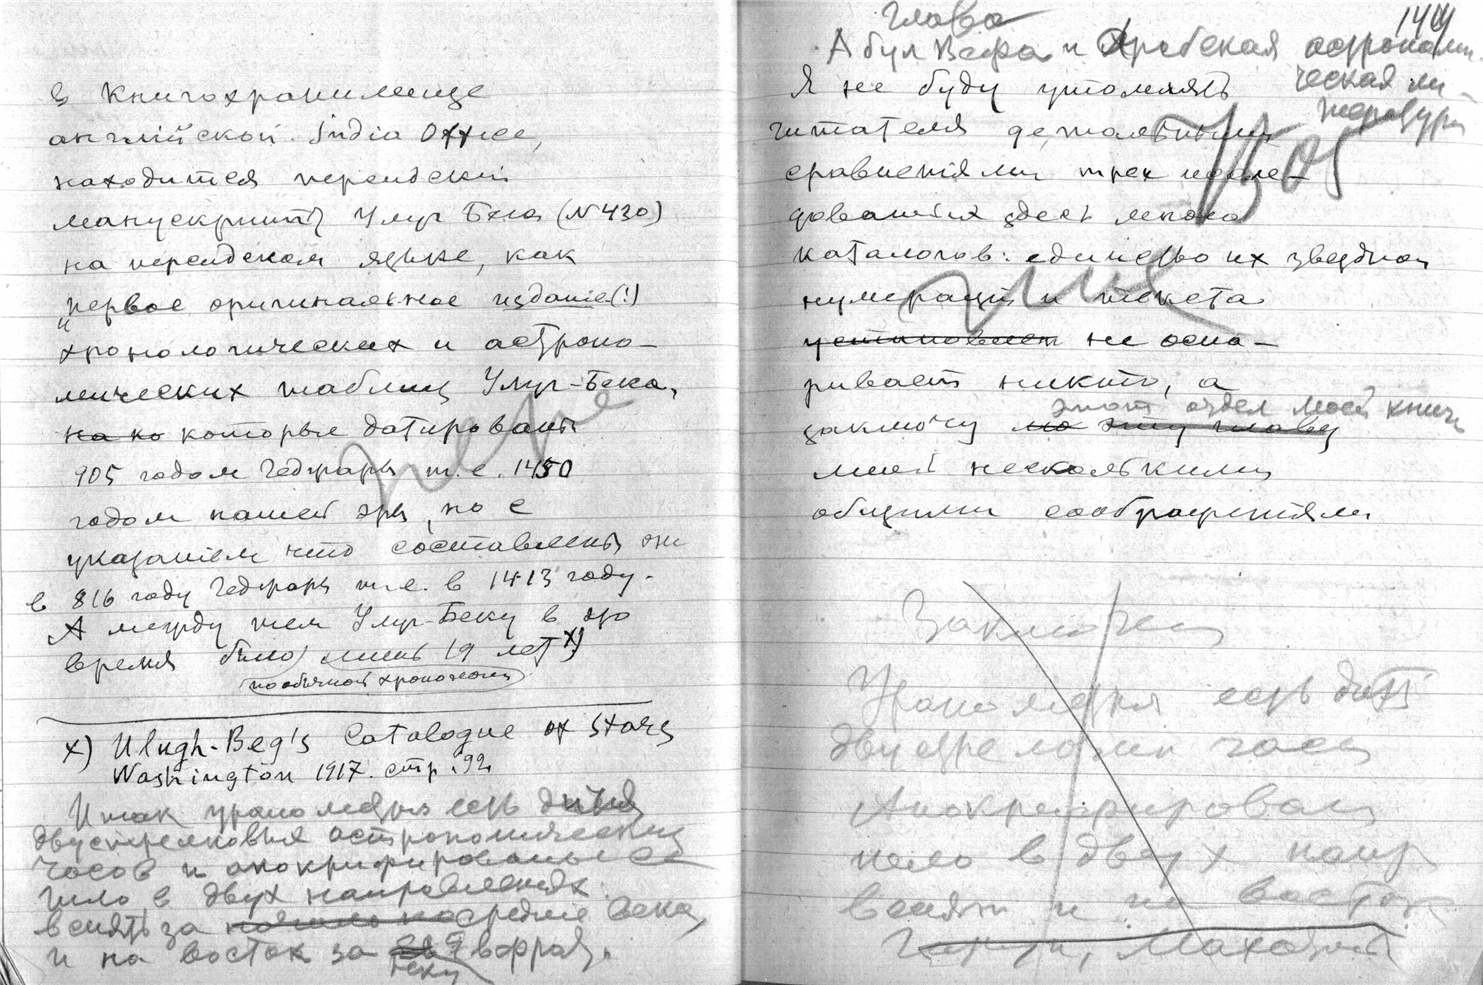 В Книгохранилище
англійской India Office,
находится персидскій
манускриптъ Улуг Бека (N 430)
на персидском языке, как
первое оригинальное изданіе (!)
хронологических и астроно-
мических таблиц Улуг-Бека,
на ко которые датированы
905 годом Геджры т. е. 1450
годом нашей эры, но с
указаніем что составлены они
в 816 году Геджры т.е. в 1413 году.
А между тем Улуг-Беку в это
время было лишь 19 лет x)
по обычной хронологии
x) Ulugh-Beg's Catalogue of Stars
Washington 1917. стр. 92.
Итак уранометрия есть дитя
двустрелковых астрономических
часов и апокрифированы ее
шло в двух направлениях
вспять за средние века,
и на восток за Евфрат.
реку
144
глава
Абул Вефа и Арабская астрономи-
ческая ли-
тература
Я не буду утомлять
читателя детальными
сравненіями трех изсле-
дованных здесь мною
каталогов: единство их звездной
нумераціи и текста
установлен не оспа-
ривает никто, а
этот отдел моей книги
закончу эту главу
лишь несколькими
общими соображеніями
Заключен
Уранометрия есть дитя
двустрелочн часов
Апокрифирован
шло в двух напр
вспять и на восток